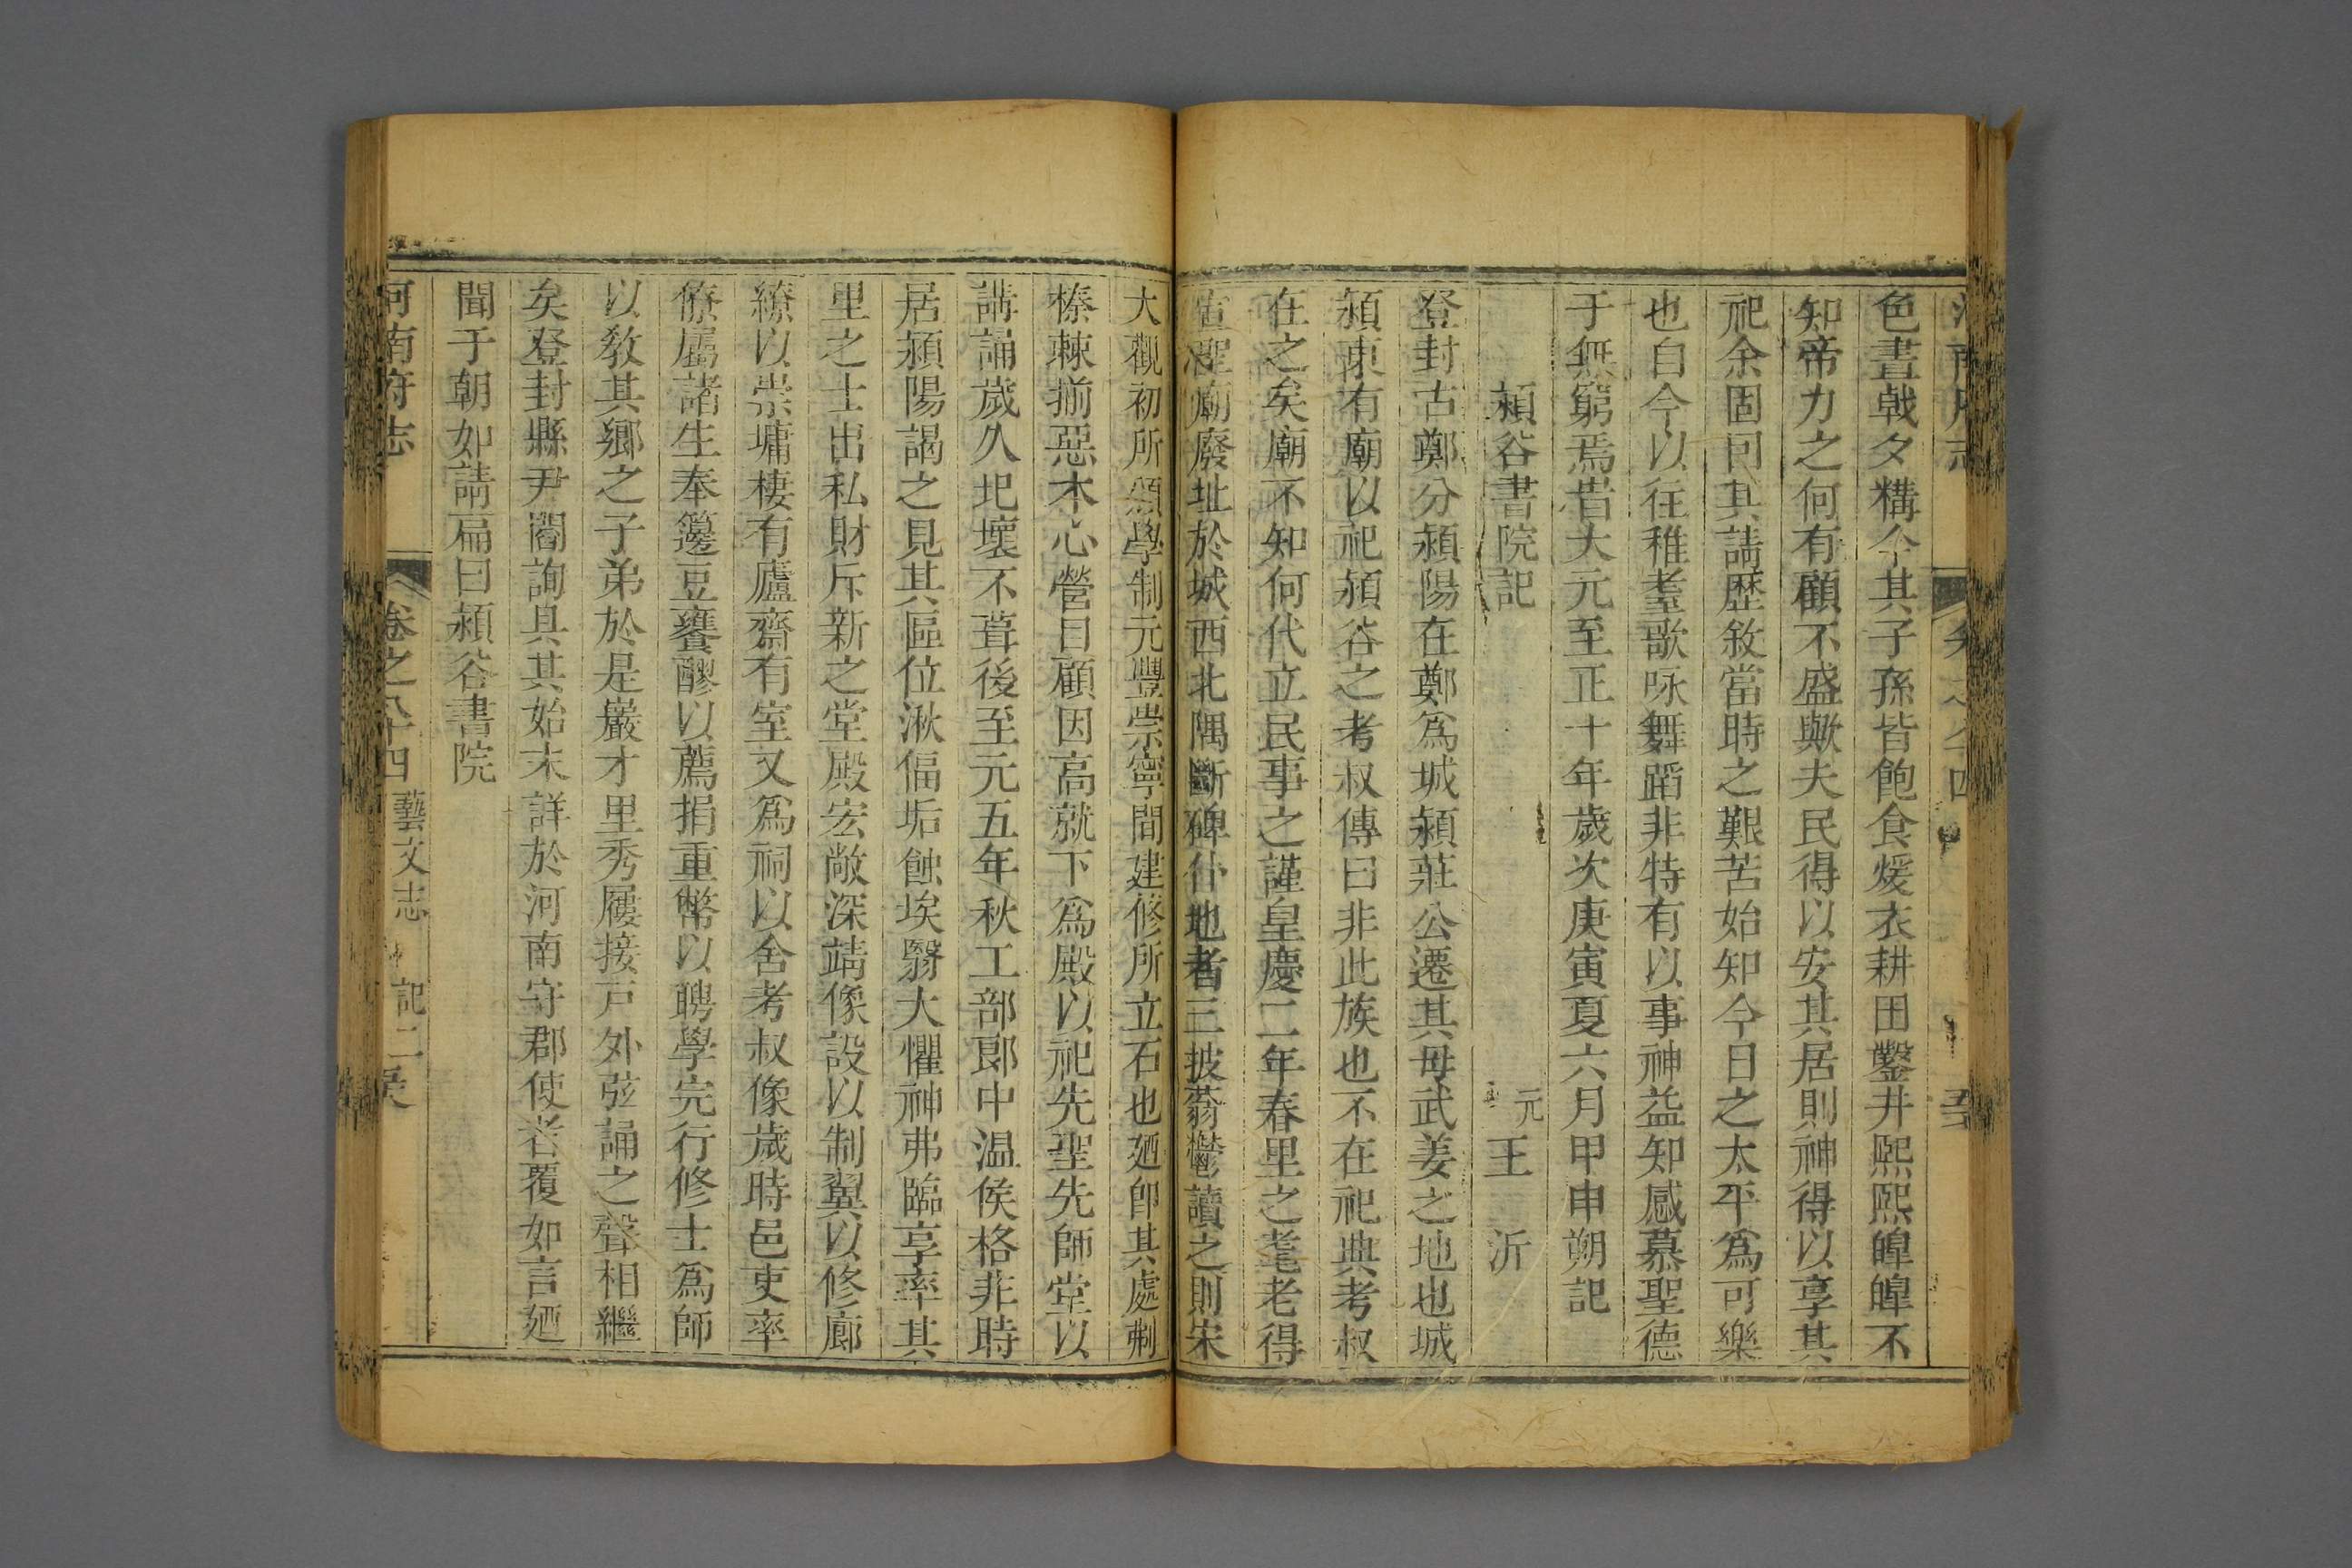 色晝戟夕構今其子孫皆飽食煖衣耕田鑿井熙熙皥皥不
知帝力之何有顧不盛歟夫民得以安其居則神得以享其
祀余固可其請歴敘當時之艱苦始知今日之太平爲可樂
也自今以往稚耋歌咏舞蹈非特有以事神益知感慕聖德
于無窮焉昔大元至正十年歲次庚寅夏六月甲申朔記
潁谷書院記 元王沂
登封古鄭分潁陽在鄭爲城潁莊公遷其母武姜之地也城
潁東有廟以祀潁谷之考叔傳曰非此族也不在祀典考叔
在之矣廟不知何代立民事之謹皇慶二年春里之耄老得
宣聖廟廢址於城西北隅斷碑仆地者三披蓊鬱讀之則宋
大觀初所頒學制元豐崇寧間建修所立石也廼卽其處剗
榛棘揃惡木心營目顧因高就下爲殿以祀先聖先師堂以
講誦歲久圯壞不葺後至元五年秋工部郎中温侯格非時
居潁陽謁之見其區位湫偪垢蝕埃翳大懼神弗臨享率其
里之士出私財斥新之堂殿宏敞深靖像設以制翼以修廊
繚以崇墉棲有廬齋有室又爲祠以舍考叔像歲時邑吏率
僚屬諸生奉籩豆饔醪以薦捐重幣以聘學完行修士爲師
以敎其鄉之子弟於是巖才里秀屨接戸外弦誦之聲相繼
矣登封縣尹閻詢具其始末詳於河南守郡使者覆如言廼
聞于朝如請扁曰潁谷書院
河南府志 卷之八十四 藝文志 記二